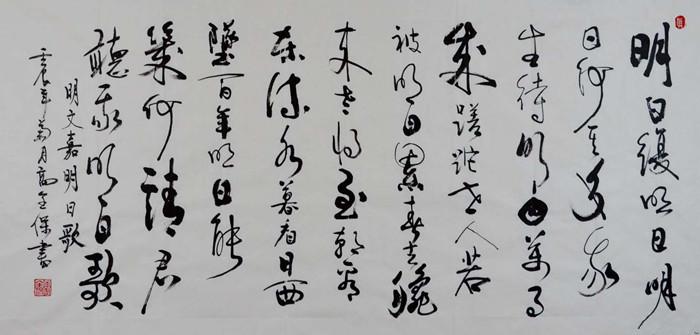 明日復明日明
日何其多我
生待明日萬事
成蹉跎世人若
被明日累春去秋
来老将至朝看
东流水暮看日西
墜百年明日能
幾何請君
聽我明日歌
明文嘉明日歌
壬辰年菊月高金保書